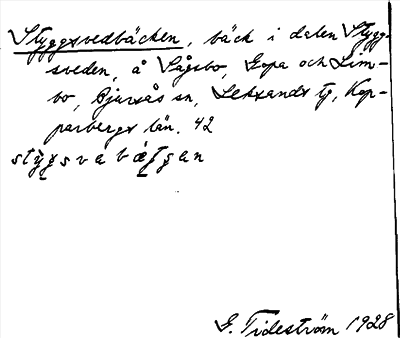 Styggsvedbäcken, bäck i dalen Stygg-
sveden, å Sågsbo, Gopa och Lim-
bo, Bjursås sn, Leksands tg, Kop-
parbergs län. 42
G. Tideström 1928